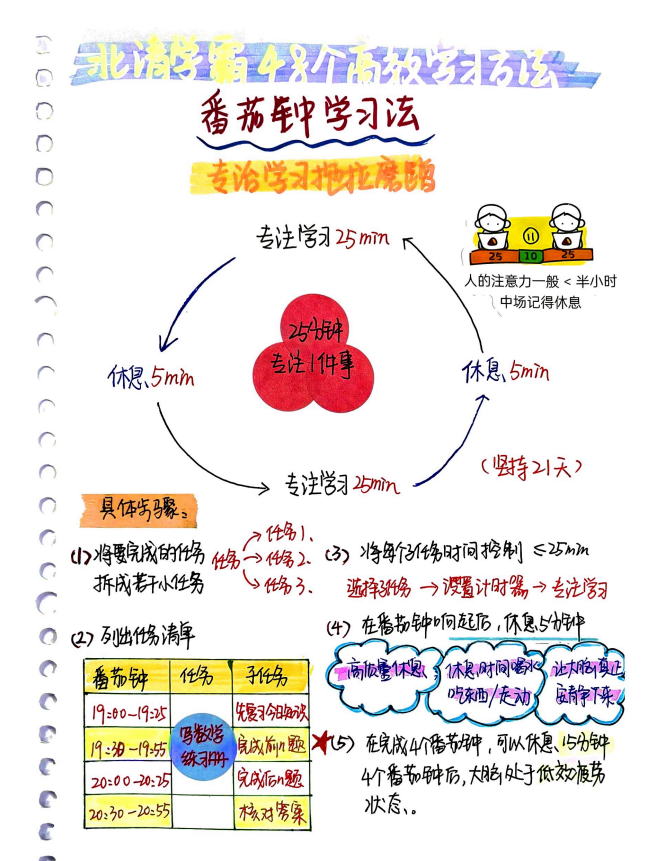 北清学霸48个高效学习方法
番茄钟学习法
专治学习拖拉磨蹭
专注学习25min
25 10 25
人的注意力一般 < 半小时
中场记得休息
25分钟
专注1件事
休息5min
休息5min
专注学习25min
(坚持21天)
具体步骤:
(1)将要完成的任务
拆成若干小任务
任务
任务1、
任务2、
任务3、
(2)列出任务清单
番茄钟 任务 子任务
19:00-19:25 先复习今日知识
19:30-19:55 完成前n题
写数学
练习册
20:00-20:25 完成后n题
20:30-20:55 核对答案
(3)将每个子任务时间控制≤25min
选择子任务→设置计时器→专注学习
(4)在番茄钟响起后,休息5分钟
高质量休息
休息时间喝水
吃东西/走动
让大脑真正
安静下来
★(5)在完成4个番茄钟,可以休息15分钟
4个番茄钟后,大脑处于低效疲劳
状态。